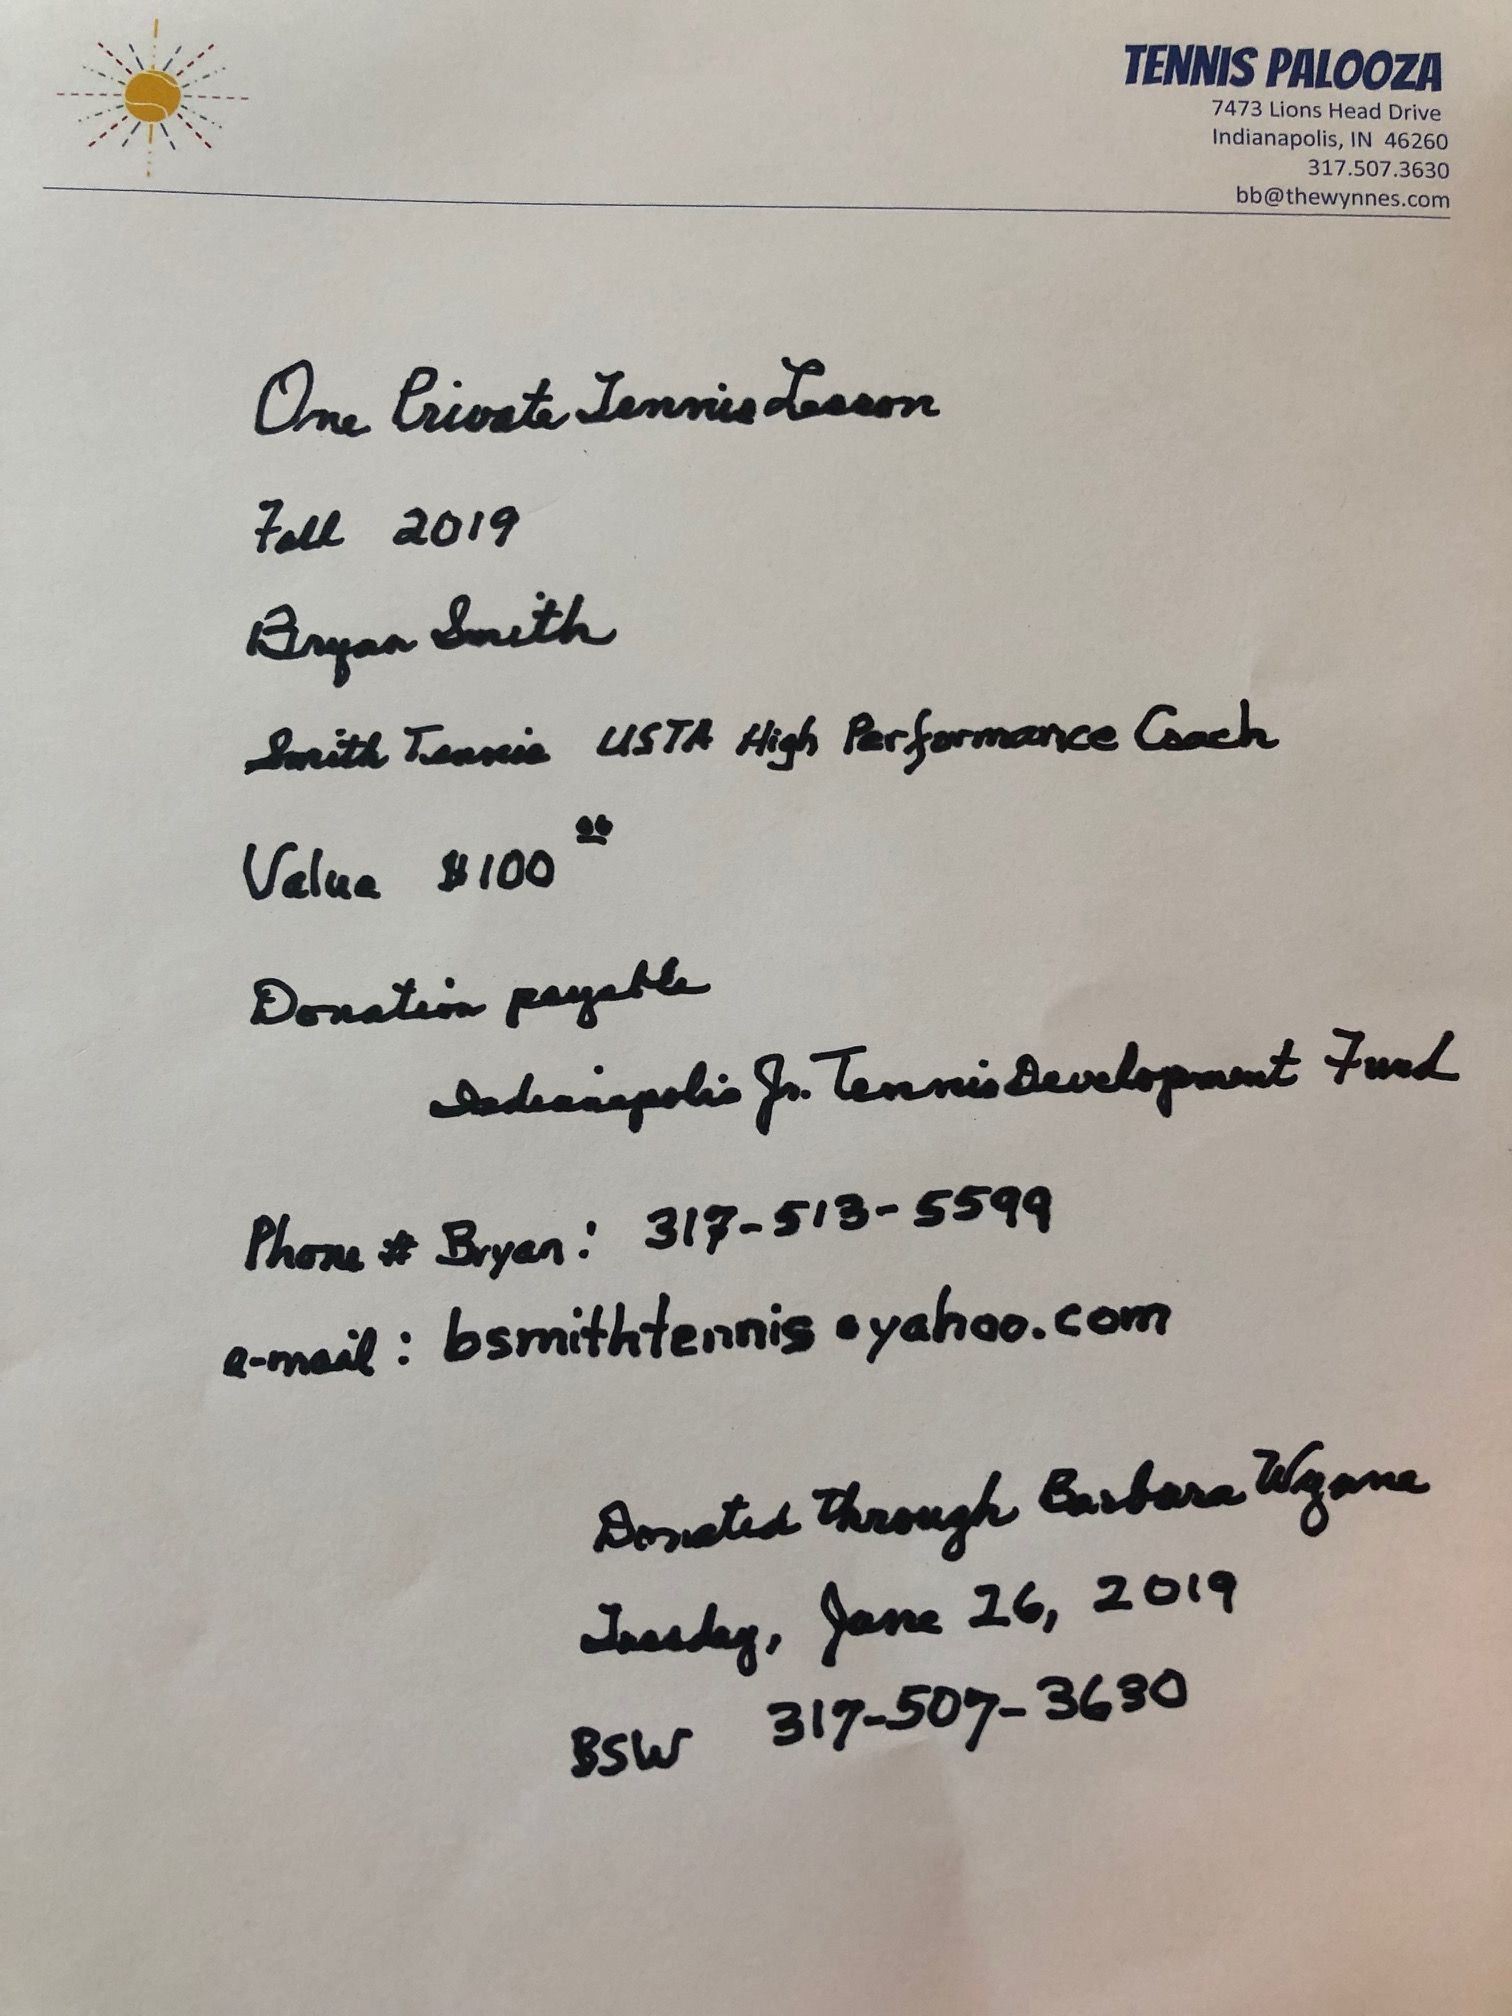 TENNIS PALOOZA
7473 Lions Head Drive
Indianapolis, IN 46260
317.507.3630
bb@thewynnes.com
One Private Tennis Lesson
Fall 2019
Bryan Smith
Smith Tennis USTA High Performance Coach
Value $100 00
Donation payable
Indianapolis Jr. Tennis Development Fund
Phone # Bryan: 317-513-5599
e-mail: bsmithtennis@yahoo.com
Donated through Barbara Wynne
Tuesday, June 26, 2019
BSW 317-507-3630